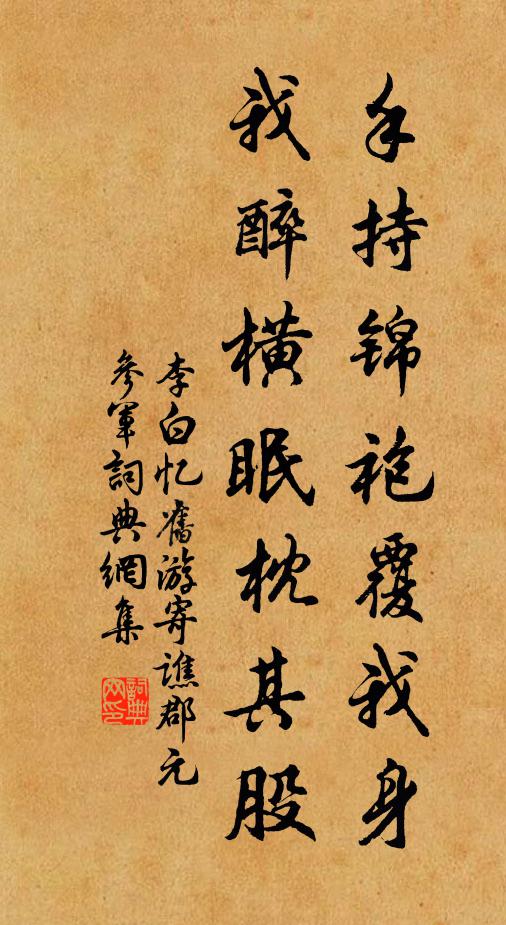 手持锦袍覆我身
我醉橫眠枕其股
李白忆舊游寄譙郡元
參軍詞典網集
詞典
网印